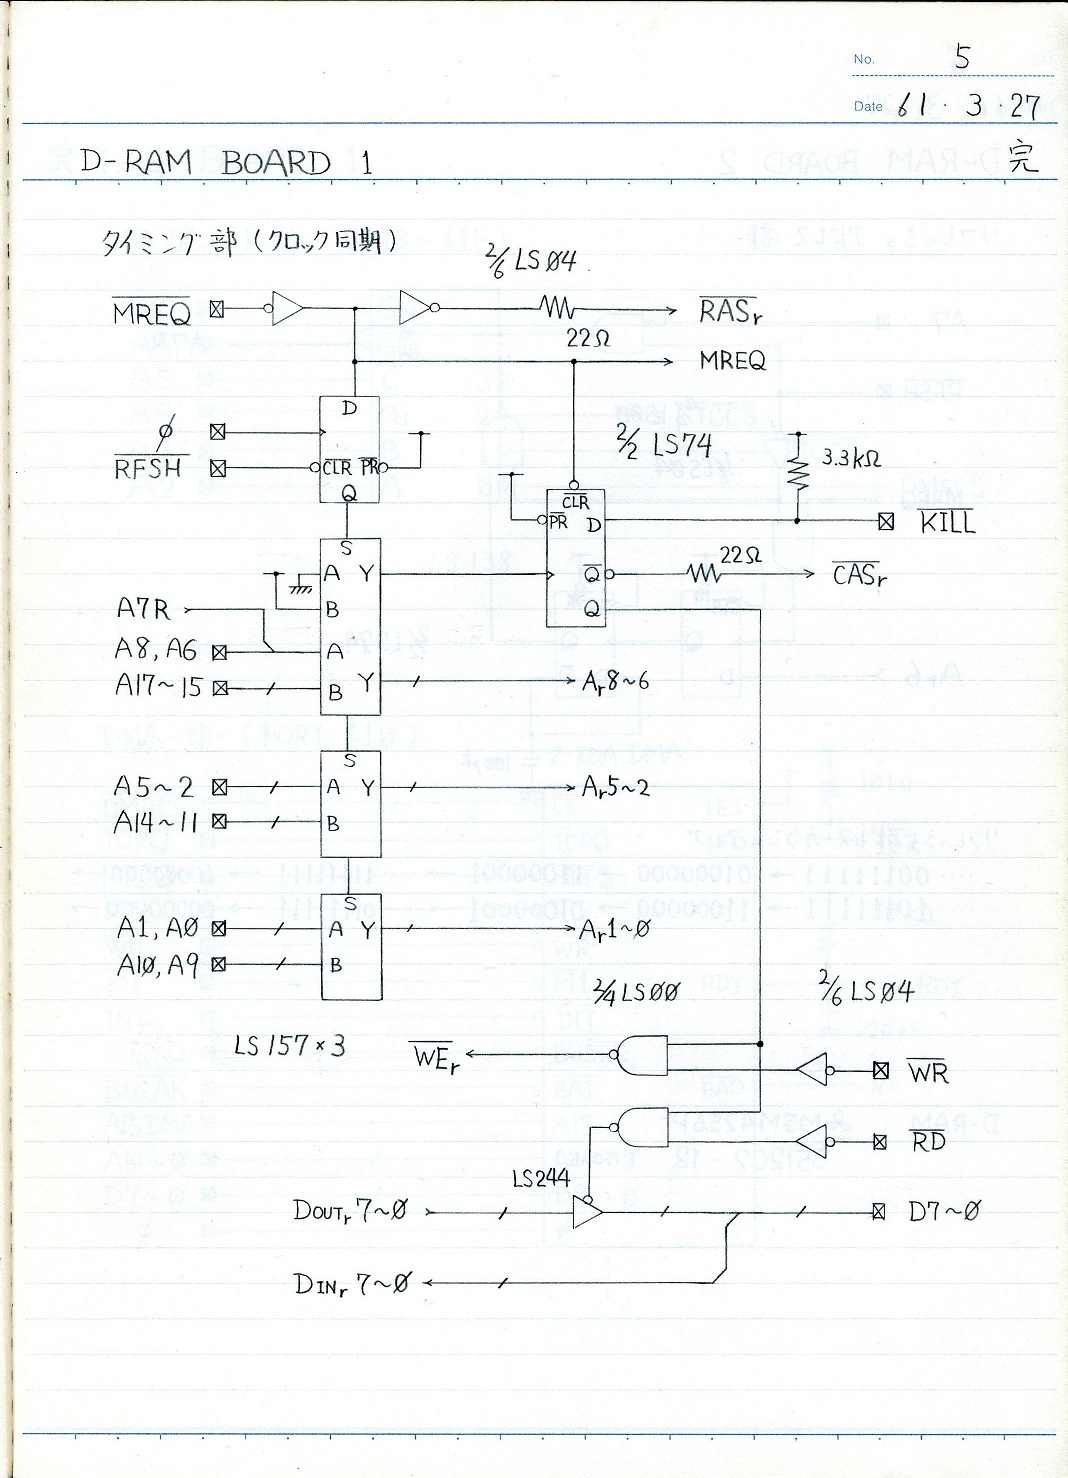 No. 5
Date 61・3・27
D-RAM BOARD 1 完
タイミング部 (クロック同期)
2/6 LS04
M̅R̅E̅Q̅ R̅A̅S̅r̅
22Ω
MREQ
D
φ
2/2 LS74
R̅F̅S̅H̅ C̅L̅R̅ P̅R̅
3.3kΩ
Q
C̅L̅R̅
P̅R̅ D K̅I̅L̅L̅
S
22Ω
A Y Q̅ C̅A̅S̅r̅
A7R B Q
A8, A6 A
A17~15 B Y Ar8~6
S
A5~2 A Y Ar5~2
A14~11 B
S
A1, A0 A Y Ar1~0
A10, A9 B
2/4 LS00 2/6 LS04
LS157×3 W̅E̅r̅ W̅R̅
R̅D̅
LS244
DOUTr 7~0 D7~0
DINr 7~0